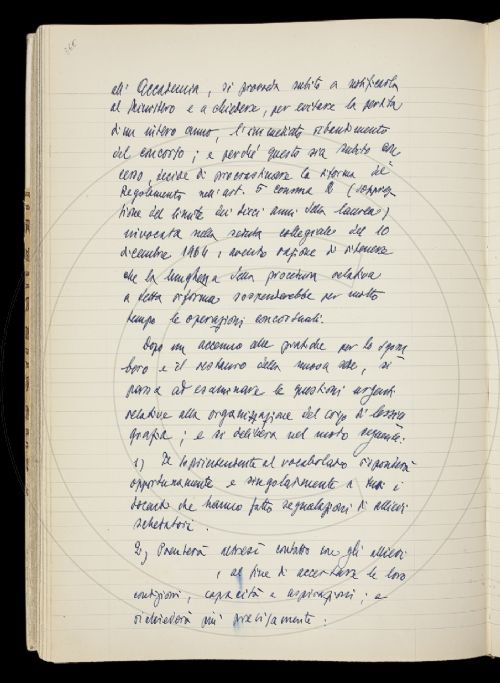 dell'Accademia, si proceda subito a notificarla
al Ministero e a chiedere, per evitare la perdita
di un intero anno, l'immediato ribandimento
del concorso; e perché questo sia subito con
cesso, decide di procrastinare la riforma del
Regolamento nell'art. 5 comma 2 (soppres
sione del limite dei dieci anni della laurea)
invocata nella seduta collegiale del 10
dicembre 1964, avendo ragione di ritenere
che la lunghezza della procedura relativa
a detta riforma sospenderebbe per molto
tempo le operazioni concorsuali.
Dopo un accenno alle pratiche per lo sgom
bero e il restauro della nuova sede, si
passa ad esaminare le questioni urgenti
relative alla organizzazione del corso di lessico
grafia; e si delibera nel modo seguente:
1) Il Soprintendente al vocabolario risponderà
opportunamente e singolarmente a tutti i
docenti che hanno fatto segnalazioni di allievi
schedatori.
2) Prenderà altresì contatto con gli allievi
, al fine di accertare le loro
condizioni, capacità e aspirazioni; e
richiederà più precisamente: